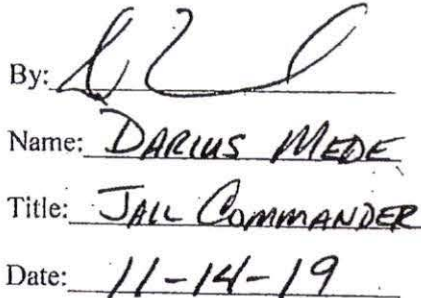 By:
Name: DARIUS MEDE
Title: JAIL COMMANDER
Date: 11-14-19